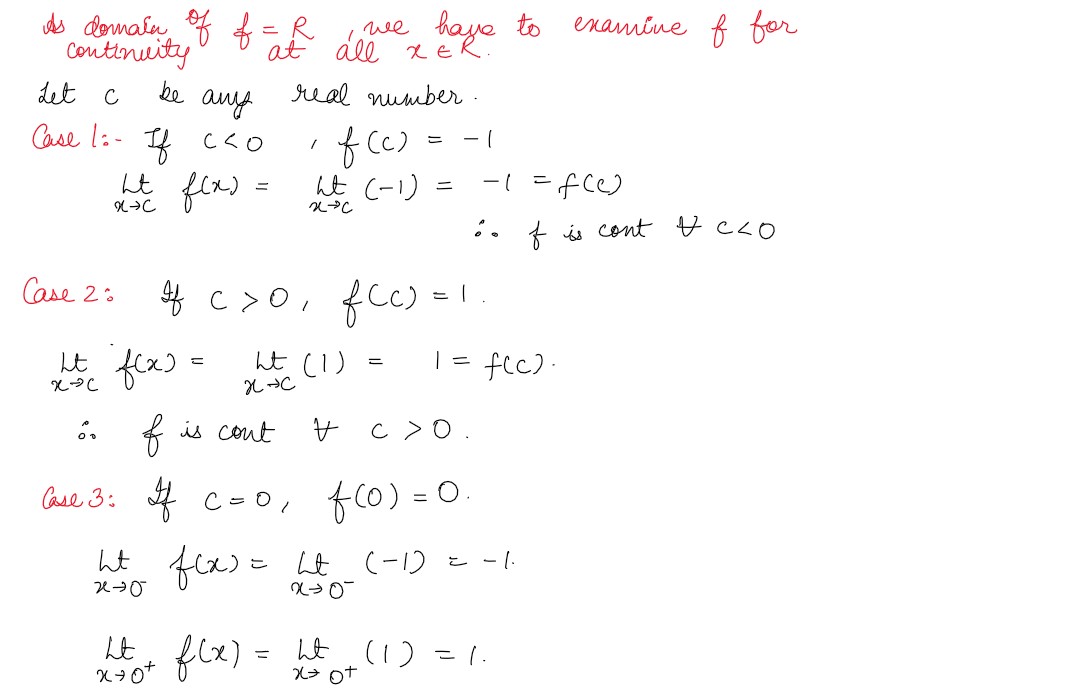 As domain of f = R , we have to examine f for
continuity at all x ∈ R.
Let c be any real number.
Case 1:- If c < 0 , f(c) = -1
Lt x→c f(x) = Lt x→c (-1) = -1 = f(c)
∴ f is cont ∀ c < 0
Case 2: If c > 0, f(c) = 1.
Lt x→c f(x) = Lt x→c (1) = 1 = f(c).
∴ f is cont ∀ c > 0.
Case 3: If c = 0, f(0) = 0.
Lt x→0⁻ f(x) = Lt x→0⁻ (-1) = -1.
Lt x→0⁺ f(x) = Lt x→0⁺ (1) = 1.